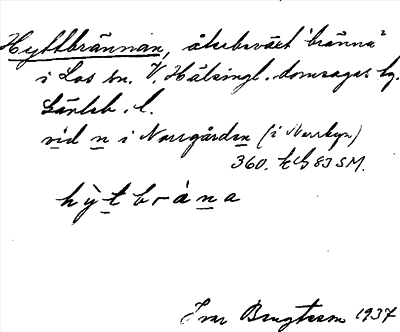 Hyttbrännan, återväxt "bränna"
i Los sn. V. Hälsingl. domsagas tg.
Gävleb. l.
vid n i Norrgården (i Norrbyn)
360. kb 83 SM.
hỳtbràna
Ivar Bengtsson 1937